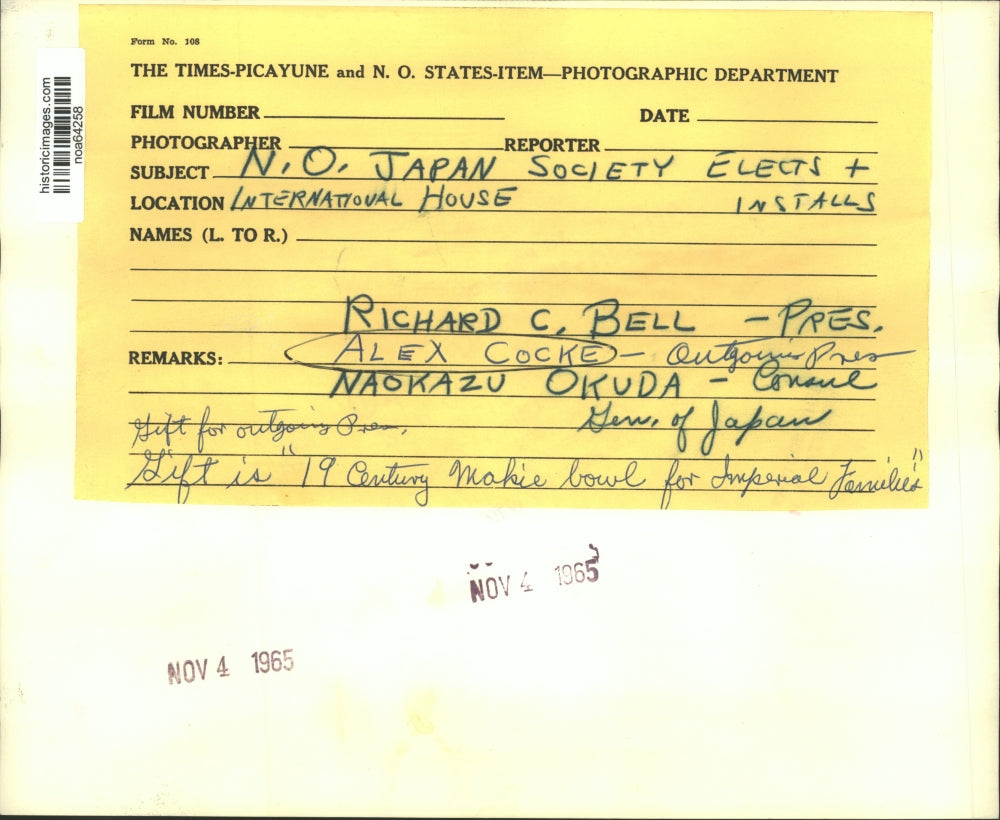 Form No. 108
THE TIMES-PICAYUNE and N. O. STATES-ITEM—PHOTOGRAPHIC DEPARTMENT
FILM NUMBER
DATE
PHOTOGRAPHER
REPORTER
SUBJECT N.O. JAPAN SOCIETY ELECTS +
LOCATION INTERNATIONAL HOUSE INSTALLS
NAMES (L. TO R.)
RICHARD C. BELL — PRES.
REMARKS: ALEX COCKE — Outgoing Pres
NAOKAZU OKUDA — Consul
Gen. of Japan
Gift for outgoing Pres.
Gift is "19 Century Makie bowl for Imperial Families"
historicimages.com
noa64258
NOV 4 1965
NOV 4 1965